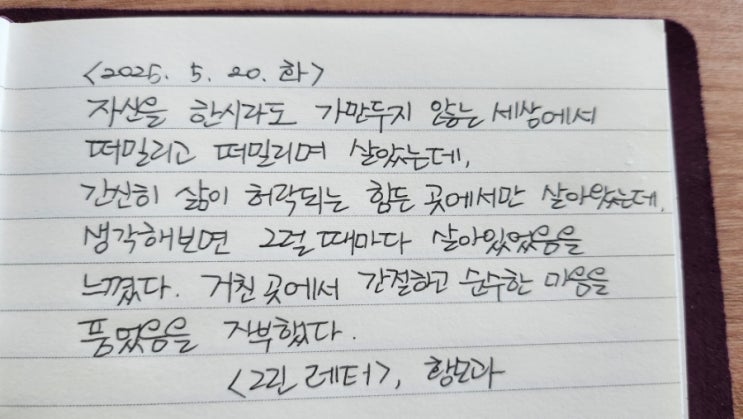 <2025. 5. 20. 화>
자신을 한시라도 가만두지 않는 세상에서
떠밀리고 떠밀리며 살았는데,
간신히 삶이 허락되는 힘든 곳에서만 살아왔는데,
생각해보면 그럴 때마다 살아있었음을
느꼈다. 거친 곳에서 간절하고 순수한 마음을
품었음을 자부했다.
<그린 레터>, 황모과